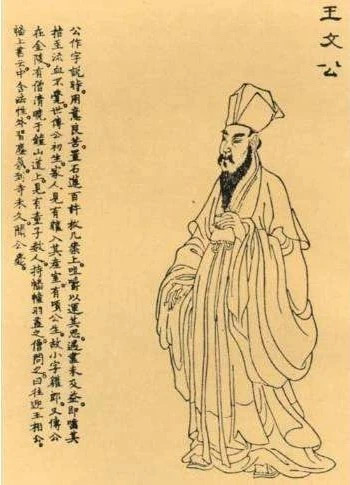 王文公
公作字說時用意良苦置石蓮百許枚几案上咀嚼以運其思遇盡未及益即囓其
指至流血不覺世傳公初生家人見有獾入其產室有頃公生故小字獾郎又傳公
在金陵有僧清曉于鐘山道上見有童子數人持幡幢羽蓋之僧問之曰往迎王相公
幡上書云中含法性外習塵氛到寺未久聞公薨